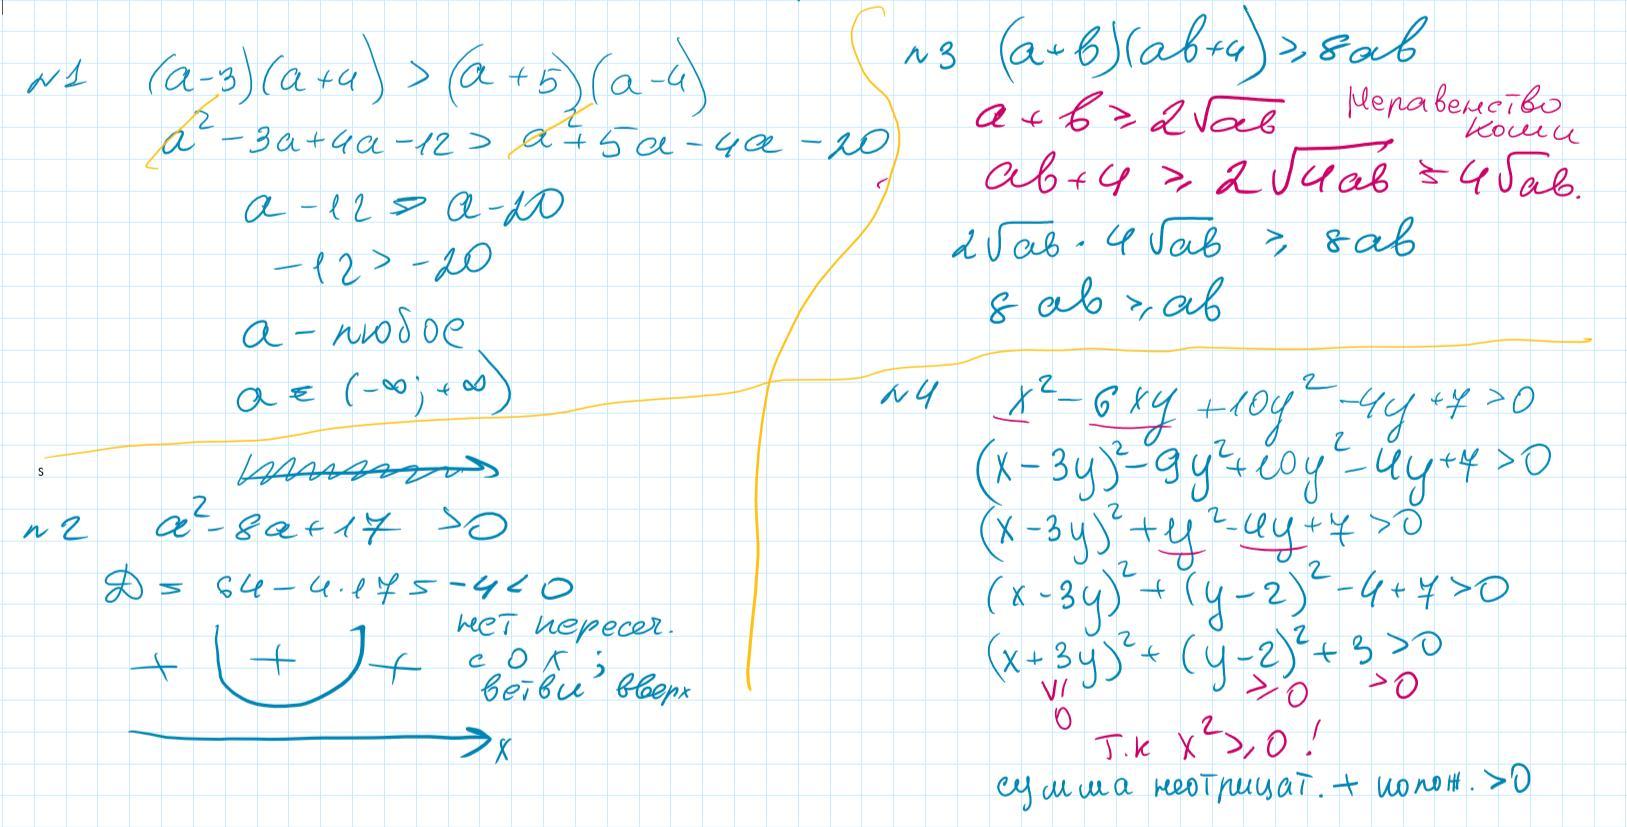 №1 (a-3)(a+4) > (a+5)(a-4)
a² - 3a + 4a - 12 > a² + 5a - 4a - 20
a - 12 > a - 20
-12 > -20
a - любое
a ∈ (-∞; +∞)
s
№2 a² - 8a + 17 > 0
D = 64 - 4·17 = -4 < 0
нет пересеч.
с OX;
ветви вверх
+ + +
x
№3 (a+b)(ab+4) ≥ 8ab
a + b ≥ 2√ab Неравенство
Коши
ab + 4 ≥ 2√4ab = 4√ab.
2√ab · 4√ab ≥ 8ab
8 ab ≥ ab
№4 x² - 6xy + 10y² - 4y + 7 > 0
(x - 3y)² - 9y² + 10y² - 4y + 7 > 0
(x - 3y)² + y² - 4y + 7 > 0
(x - 3y)² + (y - 2)² - 4 + 7 > 0
(x + 3y)² + (y - 2)² + 3 > 0
≥ 0 ≥ 0 > 0
т.к x² ≥ 0 !
сумма неотрицат. + полож. > 0